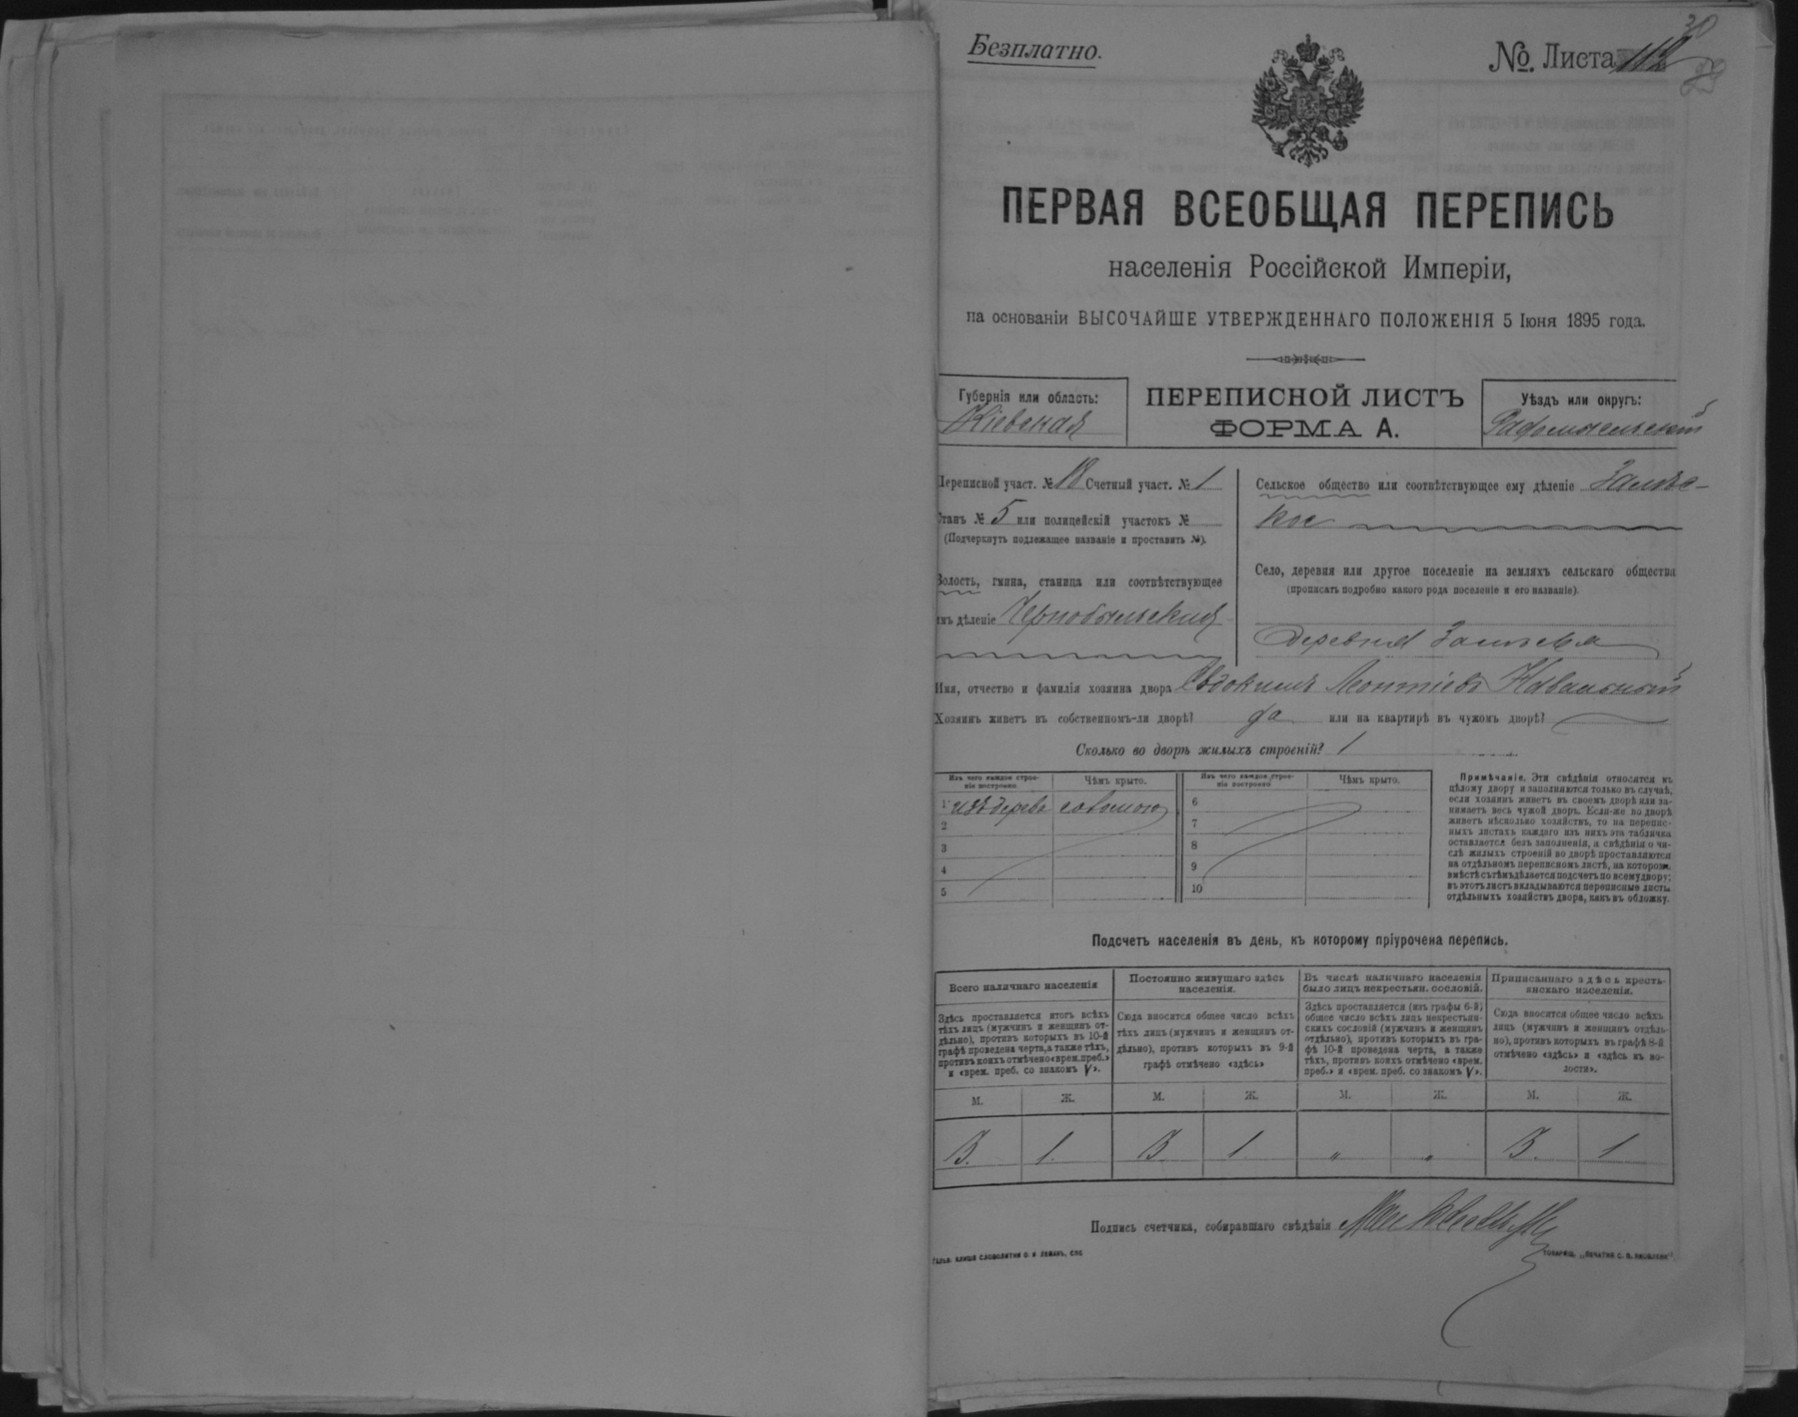 Безплатно.
№. Листа
ПЕРВАЯ ВСЕОБЩАЯ ПЕРЕПИСЬ
населенія Россійской Имперіи,
на основаніи ВЫСОЧАЙШЕ УТВЕРЖДЕННАГО ПОЛОЖЕНІЯ 5 Іюня 1895 года.
Губернія или область:
Кіевская
ПЕРЕПИСНОЙ ЛИСТЪ
ФОРМА А.
Уѣздъ или округъ:
Радомысльскій
Переписной участ. № 18 Счетный участ. № 1
Станъ № 5 или полицейскій участокъ №
(Подчеркнуть подлежащее названіе и проставить №).
Волость, гмина, станица или соотвѣтствующее
имъ дѣленіе Чернобыльская
Сельское общество или соотвѣтствующее ему дѣленіе Залѣс-
кое
Село, деревня или другое поселеніе на земляхъ сельскаго общества
(прописать подробно какого рода поселеніе и его названіе).
Деревня Залѣсье
Имя, отчество и фамилія хозяина двора Евдокимъ Леонтіевъ Навальный
Хозяинъ живетъ въ собственномъ-ли дворѣ? да или на квартирѣ въ чужомъ дворѣ?
Сколько во дворѣ жилыхъ строеній? 1
Изъ чего каждое строе-
ніе построено.
Чѣмъ крыто.
Изъ чего каждое строе-
ніе построено
Чѣмъ крыто.
1 изъ дерева соломою
2
3
4
5
6
7
8
9
10
Примѣчаніе. Эти свѣдѣнія относятся къ
цѣлому двору и заполняются только въ случаѣ,
если хозяинъ живетъ въ своемъ дворѣ или за-
нимаетъ весь чужой дворъ. Если-же во дворѣ
живетъ нѣсколько хозяйствъ, то на перепис-
ныхъ листахъ каждаго изъ нихъ эта табличка
оставляется безъ заполненія, а свѣдѣнія о чи-
слѣ жилыхъ строеній во дворѣ проставляются
на отдѣльномъ переписномъ листѣ, на которомъ
вмѣстѣ съ тѣмъ дѣлается подсчетъ по всему двору;
въ этотъ листъ вкладываются переписные листы
отдѣльныхъ хозяйствъ двора, какъ въ обложку.
Подсчетъ населенія въ день, къ которому пріурочена перепись.
Всего наличнаго населенія
Здѣсь проставляется итогъ всѣхъ
тѣхъ лицъ (мужчинъ и женщинъ от-
дѣльно), противъ которыхъ въ 10-й
графѣ проведена черта, а также тѣхъ,
противъ коихъ отмѣчено «врем. преб.»
и «врем. преб. со знакомъ V».
Постоянно живущаго здѣсь
населенія.
Сюда вносится общее число всѣхъ
тѣхъ лицъ (мужчинъ и женщинъ от-
дѣльно), противъ которыхъ въ 9-й
графѣ отмѣчено «здѣсь»
Въ числѣ наличнаго населенія
было лицъ некрестьян. сословій.
Здѣсь проставляется (изъ графы 6-й)
общее число всѣхъ лицъ некрестьян-
скихъ сословій (мужчинъ и женщинъ
отдѣльно), противъ которыхъ въ гра-
фѣ 10-й проведена черта, а также
тѣхъ, противъ коихъ отмѣчено «врем.
преб.» и «врем. преб. со знакомъ V».
Приписаннаго здѣсь кресть-
янскаго населенія.
Сюда вносится общее число всѣхъ
лицъ (мужчинъ и женщинъ отдѣль-
но), противъ которыхъ въ графѣ 8-й
отмѣчено «здѣсь» и «здѣсь въ во-
лости».
М. Ж. М. Ж. М. Ж. М. Ж.
3. 1. 3 1 „ „ 3. 1
Подпись счетчика, собиравшаго свѣдѣнія
Гальв. клише словолитни О. И. Леманъ, СПБ.
Товарищ. „Печатня С. П. Яковлева“.